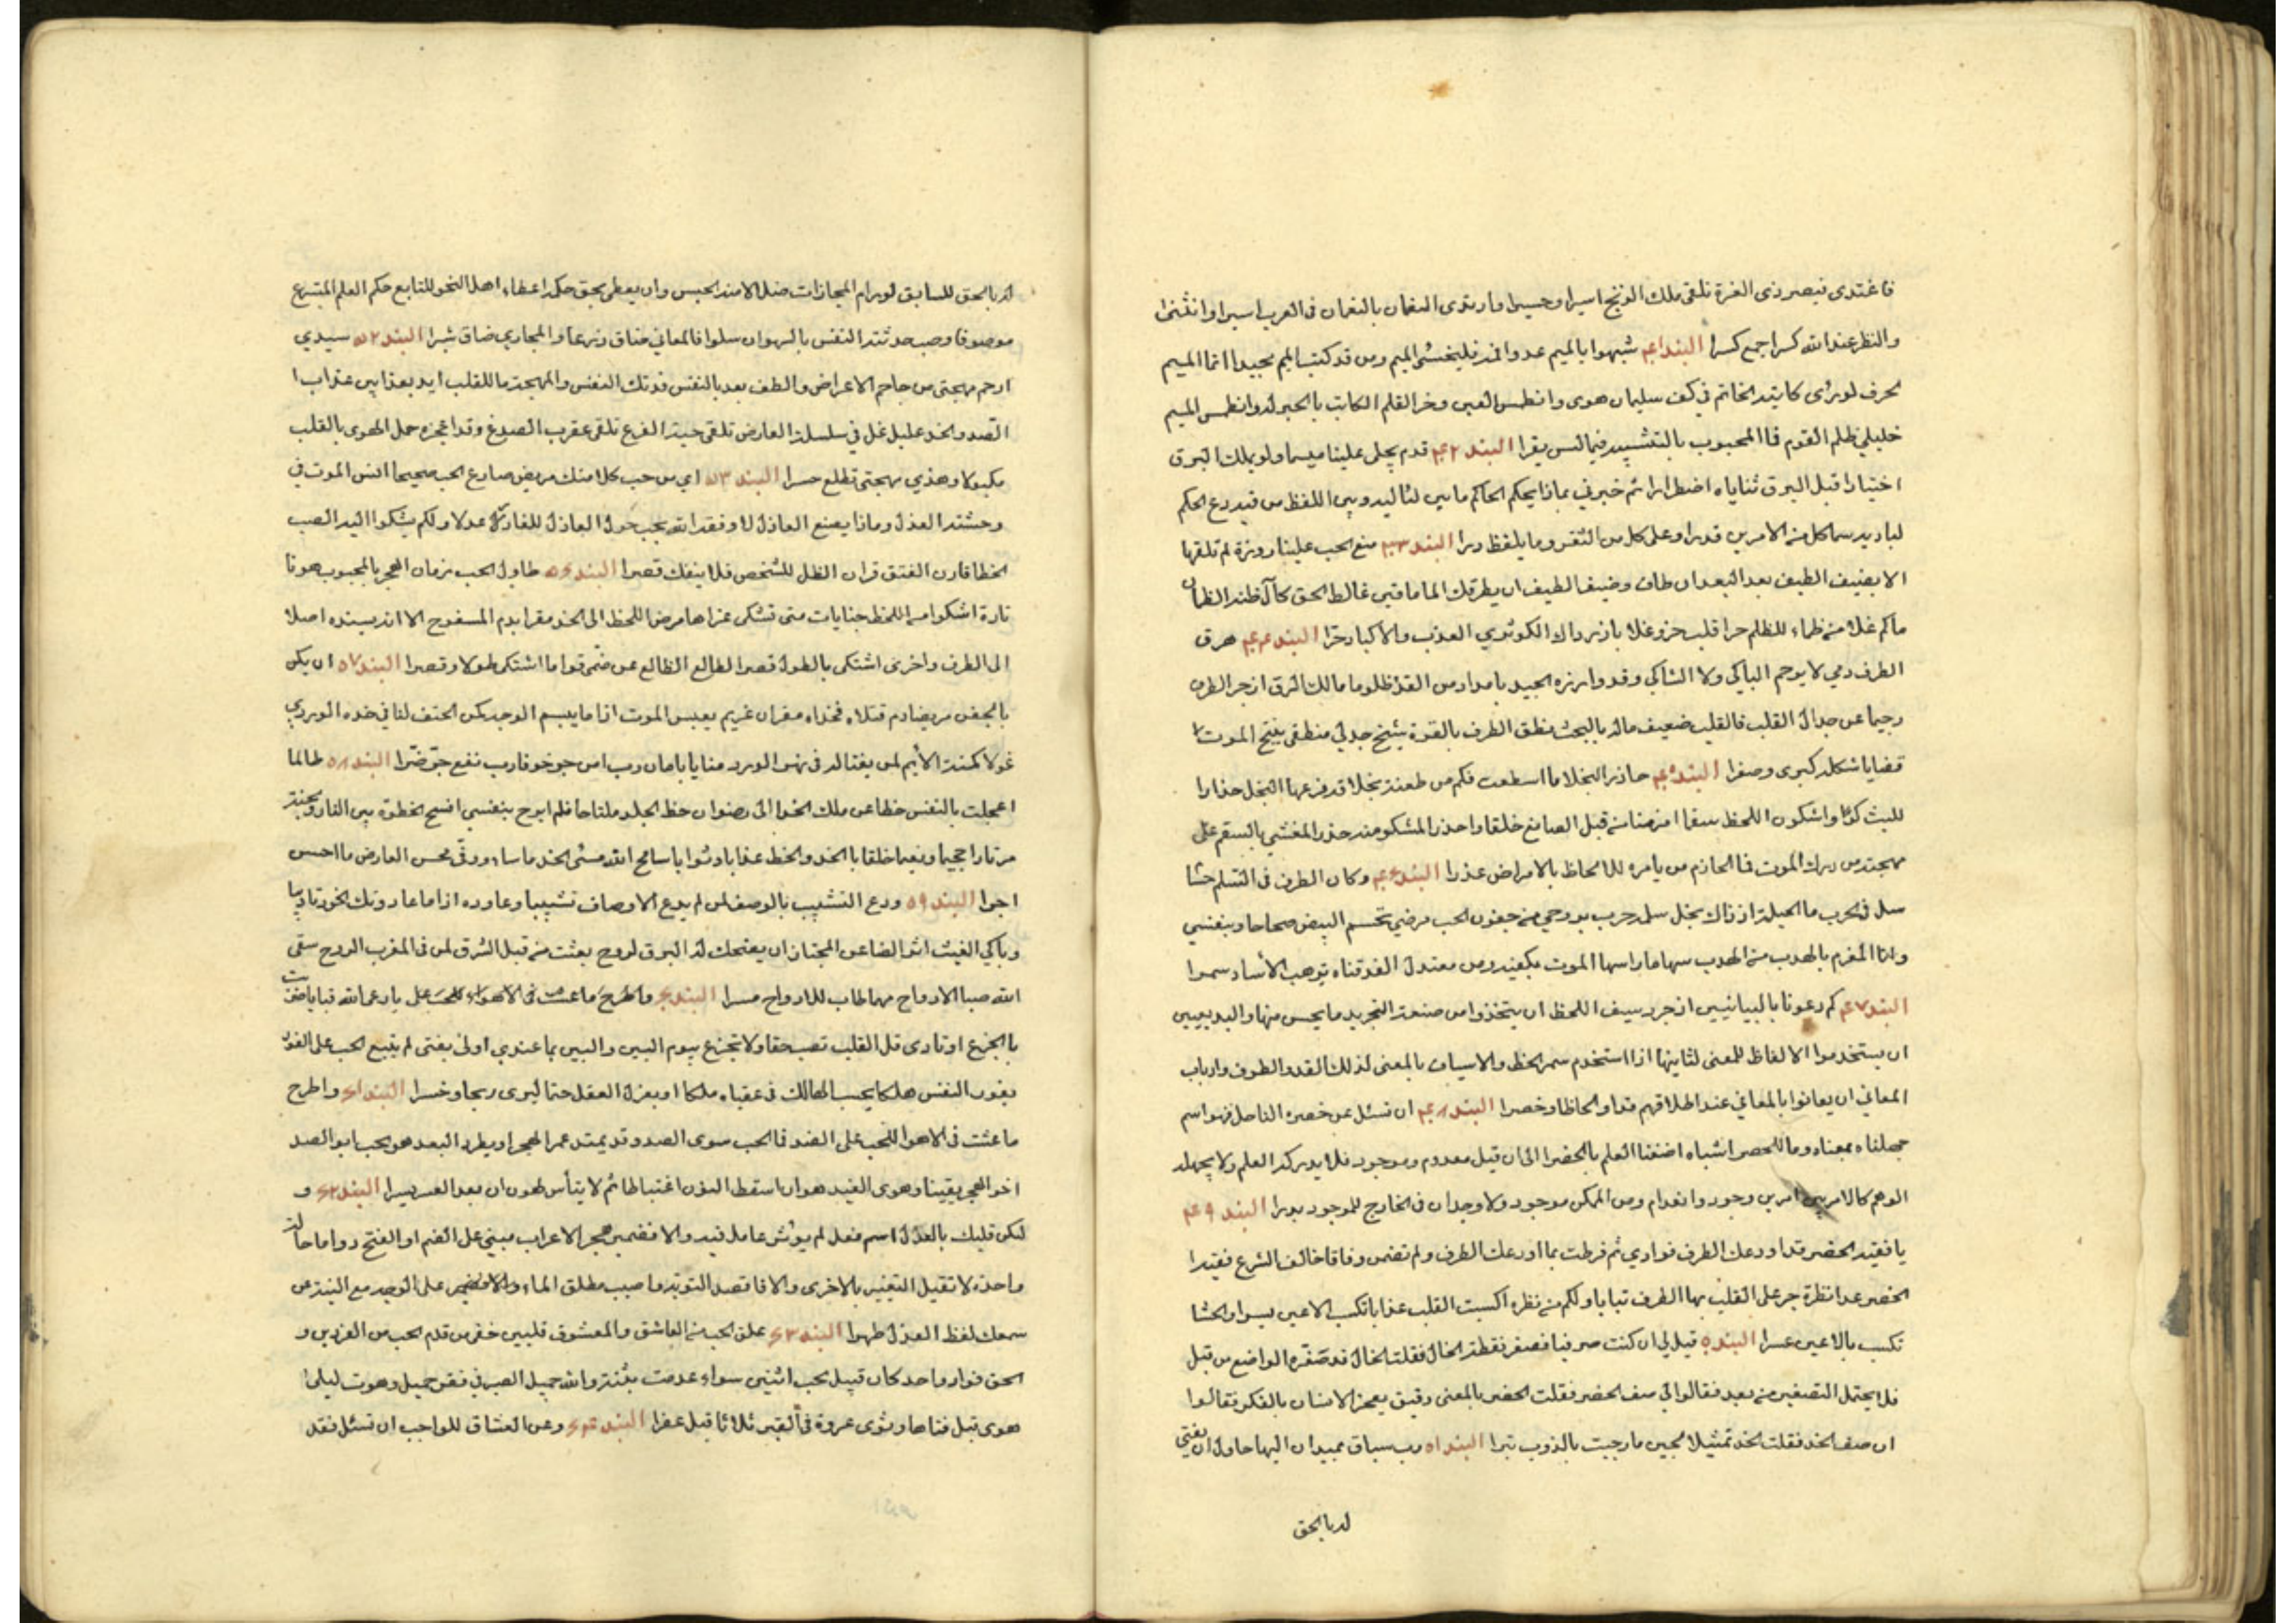 فاغتدى قيصر ذى الغرة تلقى ملك الزنج اسيرا وحسيرا وارتدى النعمان بالنعمان فى العرب اسيرا وانثنى
والنظر عند الله كسرا جمع كسرا البند ٤١ شبهوا بالميم عدوا فمه فليخش الميم ومن قد كتب الميم مجيدا انما الميم
حرف لو رأى كاتبه الخاتم في كف سليمان هوى وانطمس العين وخر القلم الكاتب بالحبر له وانطمس الميم
خليلي ظلم القوم فما المحبوب بالتشبيه فيما ليس يقرا البند ٤٢ قدم يجلى علينا ميسما ولو يملك البرق
اختيارا قبل البرق ثناياه اضطرارا ثم خبرني بماذا يحكم الحاكم ما بين لئاليه وبين اللفظ من فيه دع الحكم
لباديه سما كل من الامرين قدرا وعلى كل من الثغر وما يلفظ درا البند ٤٣ منع الحب علينا زورة لم تلقها
الا بضيف الطيف بعد البعد ان طاف وضيف الطيف ان يطرقك الماما قمي غالط الحق كآل ظنه الظمآن
ماكم غلا من ظماء للظلم حرا قلب حزو غلا باذرداك الكوثري العذب والاكباد حرّا البند ٤٤ هرق
الطرف دمي لا يرحم الباكي ولا الشاكي وقد وازره الجيد بامداد من القد ظلوما مالك الرق ازجر الطرف
رحيما عن جدال القلب فالقلب ضعيف ماله بالبحث نطق الطرف بالقوة ينتج جدلي منطقي ينتج الموت
قضايا شكله كبرى وصغرا البند ٤٥ حاذر النجلا ما اسطعت فكم من طعنة نجلا قد فزعها النجل حذارا
للبث كرّا واشكون اللحظ سقما امرضنا من قبل الصانع خلقا واحذر المشكو منه حذر المغشي بالسقم على
مهجته من درك الموت فما الحازم من يامره للالحاظ بالامراض عذرا البند ٤٦ وكان الطرف فى السلم حشا
سل في الحرب ما الحيلة اذ ذاك بخل سله حرب بو رحمي من جفون الحب مرضى تحسم البيض صحاحا وبنفسي
وانا المغرم بالهدب من الهدب سهاما راسها الموت بكفيه ومن معتدل القد قناه ترهب الآساد سمرا
البند ٤٧ كم دعونا بالبيانيين اذ جرد سيف اللحظ ان يتخذوا من صنعة التجريد ما يحسن منها والبديعيين
ان يستخدموا الالفاظ للمعنى لثانيها اذا استخدم سمر الخط والاسياف بالمعنى لذلك القد والطرف وارباب
المعاني ان يعانوا بالمعاني عند اطلاقهم قدا والحاظا وخصرا البند ٤٨ ان تسئل عن خصره الناحل فهو اسم
جهلناه بمعناه وما للخصر اشباه اضفنا العلم بالخصر الى ان قيل معدوم وموجود فلا يدركه العلم ولا يجهله
الوهم كالامرين امرين وجود وانعدام ومن الممكن موجود ولا وجدان فى الخارج للموجود يدرا البند ٤٩
يا فقيد الخصر قد اودعك الطرف فؤادي ثم فرطت بما اودعك الطرف ولم تضمن وفاقا خالف الشرع فقيدا
الخصر عدا نظرة جر على القلب بها الطرف تبابا ولكم من نظره اكسبت القلب عذابا تكسب الاعين يسرا والحشا
تكسب بالاعين عسرا البند ٥٠ قيل لي ان كنت صرفيا فصغر نقطة الخال فقلت الخال قد صغّره الواضع من قبل
فلا يحتمل التصغير من بعد فقالوا لي صف الخصر فقلت الخصر بالمعنى دقيق يعجز الانسان بالفكر فقالوا
ان صف الخد فقلت الخد تمثيلا لجين مازجت بالذوب تبرا البند ٥١ رب سباق بميدان اليها حاول ان يفتي
له بالحق
له بالحق للسابق لو رام المجازات ضل الامد الحبس وان يعطى بحق حكم اعطاء اهل النحو للتابع حكم العلم المتبع
موصوفا وصب حدثته النفس بالسهو ان سلوا فالمعاني ضاق ذرعا والمجاري ضاق شبرا البند ٥٢ سيدي
ارحم مهجتى من جاحم الاعراض والطف بعد بالنفس فدتك النفس والمهجة ما للقلب ايد بعذابين عذاب
الصد والخد عليل غل في سلسلة العارض تلقى حية الفرع تلقى عقرب الصدغ وقد اعجزه حمل الهوى بالقلب
مكبولا وهذي مهجتى تطلع حسرا البند ٥٣ اي من حب كلا منك مريض صارع الحب صحيحا انس الموت في
وحشته العذل وماذا يصنع العاذل لا وفقه الله بحب خول العاذل للغادر عدلا ولكم يشكوا اليه الصب
الخطا قارن الفتق قران الظل للشخص فلا ينفك قصرا البند ٥٦ طاول الحب زمان الهجر بالمحبوب هونا
تارة اشكوا من اللحظ جنايات متى تشكى عزاها مرض اللحظ الى الخد مقرا بدم المسفوح الا انه يسنده اصلا
الى الطرف واخرى اشتكى بالطول قصرا لطالع الظالع عمن ضمّ قواما اشتكى طولا وقصرا البند ٥٧ ان يكن
بالجفن مريضا دم قتلاه فخداه مقران غريم يعبس الموت اذا ما يبسم الوجد يكن الحتف لنا في خده الوردي
غولا كمنة الايم لمن يغتاله فى نهر الورد منايا بامان رب امن جر خوفا رب نفع جرّ ضرّا البند ٥٨ طالما
اعجلت بالنفس خطاعن ملك الخد الى رضوان حظ الجلد ملتاحا فلم ابرح بنفسي افسح الخطوة بين النار والجنة
مرتادا جحيما ونعيما خلقا بالخد والخط عذابا وثوابا سامح الله مسئ الخد ما ساء ووقّى محسن العارض ما احسن
اجرا البند ٥٩ ودع التشبيب بالوصف لمن لم يدع الاوصاف تشبيبا وعاوده اذا ما عاد وتك الخود تاديبا
وباكي الغيث اثر الضاعن المجتاز ان يضحك له البرق لروح بعثت من قبل الشرق لمن فى المغرب الروح سقى
الله صبا الارواح مهما طاب للارواح مسرا البند ٦٠ واطرح ما عشت فى الاهواء للحب على يا رعى الله قبابا ضربت
بالجزع اوتادى قل القلب تصب حقا ولا تجزع بيوم البين والبين بما عندي اولى بفتى لم يتبع الحب على الفور
بفور النفس هلكا يحسب الهالك فى عقباه ملكا او يعزل العقل حتما ليرى ربحا وخسرا البند ٦١ واطرح
ما عشت فى الاهوا للحب على الضد فما الحب سوى الصد وقد يمتد عمر الهجر او يطرد البعد هو الحب ابو الصد
اخو الهجر يقينا وهوى الغيد هوان اسقط النون اغتباطا ثم لا يتأس لهون ان بعد العسر يسرا البند ٦٢ و
لتكن قلبك بالعذل اسم فعل لم يؤثر عامل فيه والا فضمير هجر الاعراب مبنيّ على الضم او الفتح دواما حالة
واحدة لا تقبل التغيير بالاخرى والا فاقصد التوبة ما صبب مطلق الماء والا فتيمم على الوجه مع النية عن
سمعك لفظ العذل طهرا البند ٦٣ علق الحب من العاشق والمعشوق قلبين خفر من قلم الحب من الفردين و
الحق فواد واحد كان قبيل الحب اثنين سواء عدمت بثنة والله جميل الصبر في فقد جميل وهوت ليلى
هوى قبل فتاها وثوى عروة في القبر ثلاثا قبل عفرا البند ٦٤ وعن العشاق للواجب ان تسئل فقد